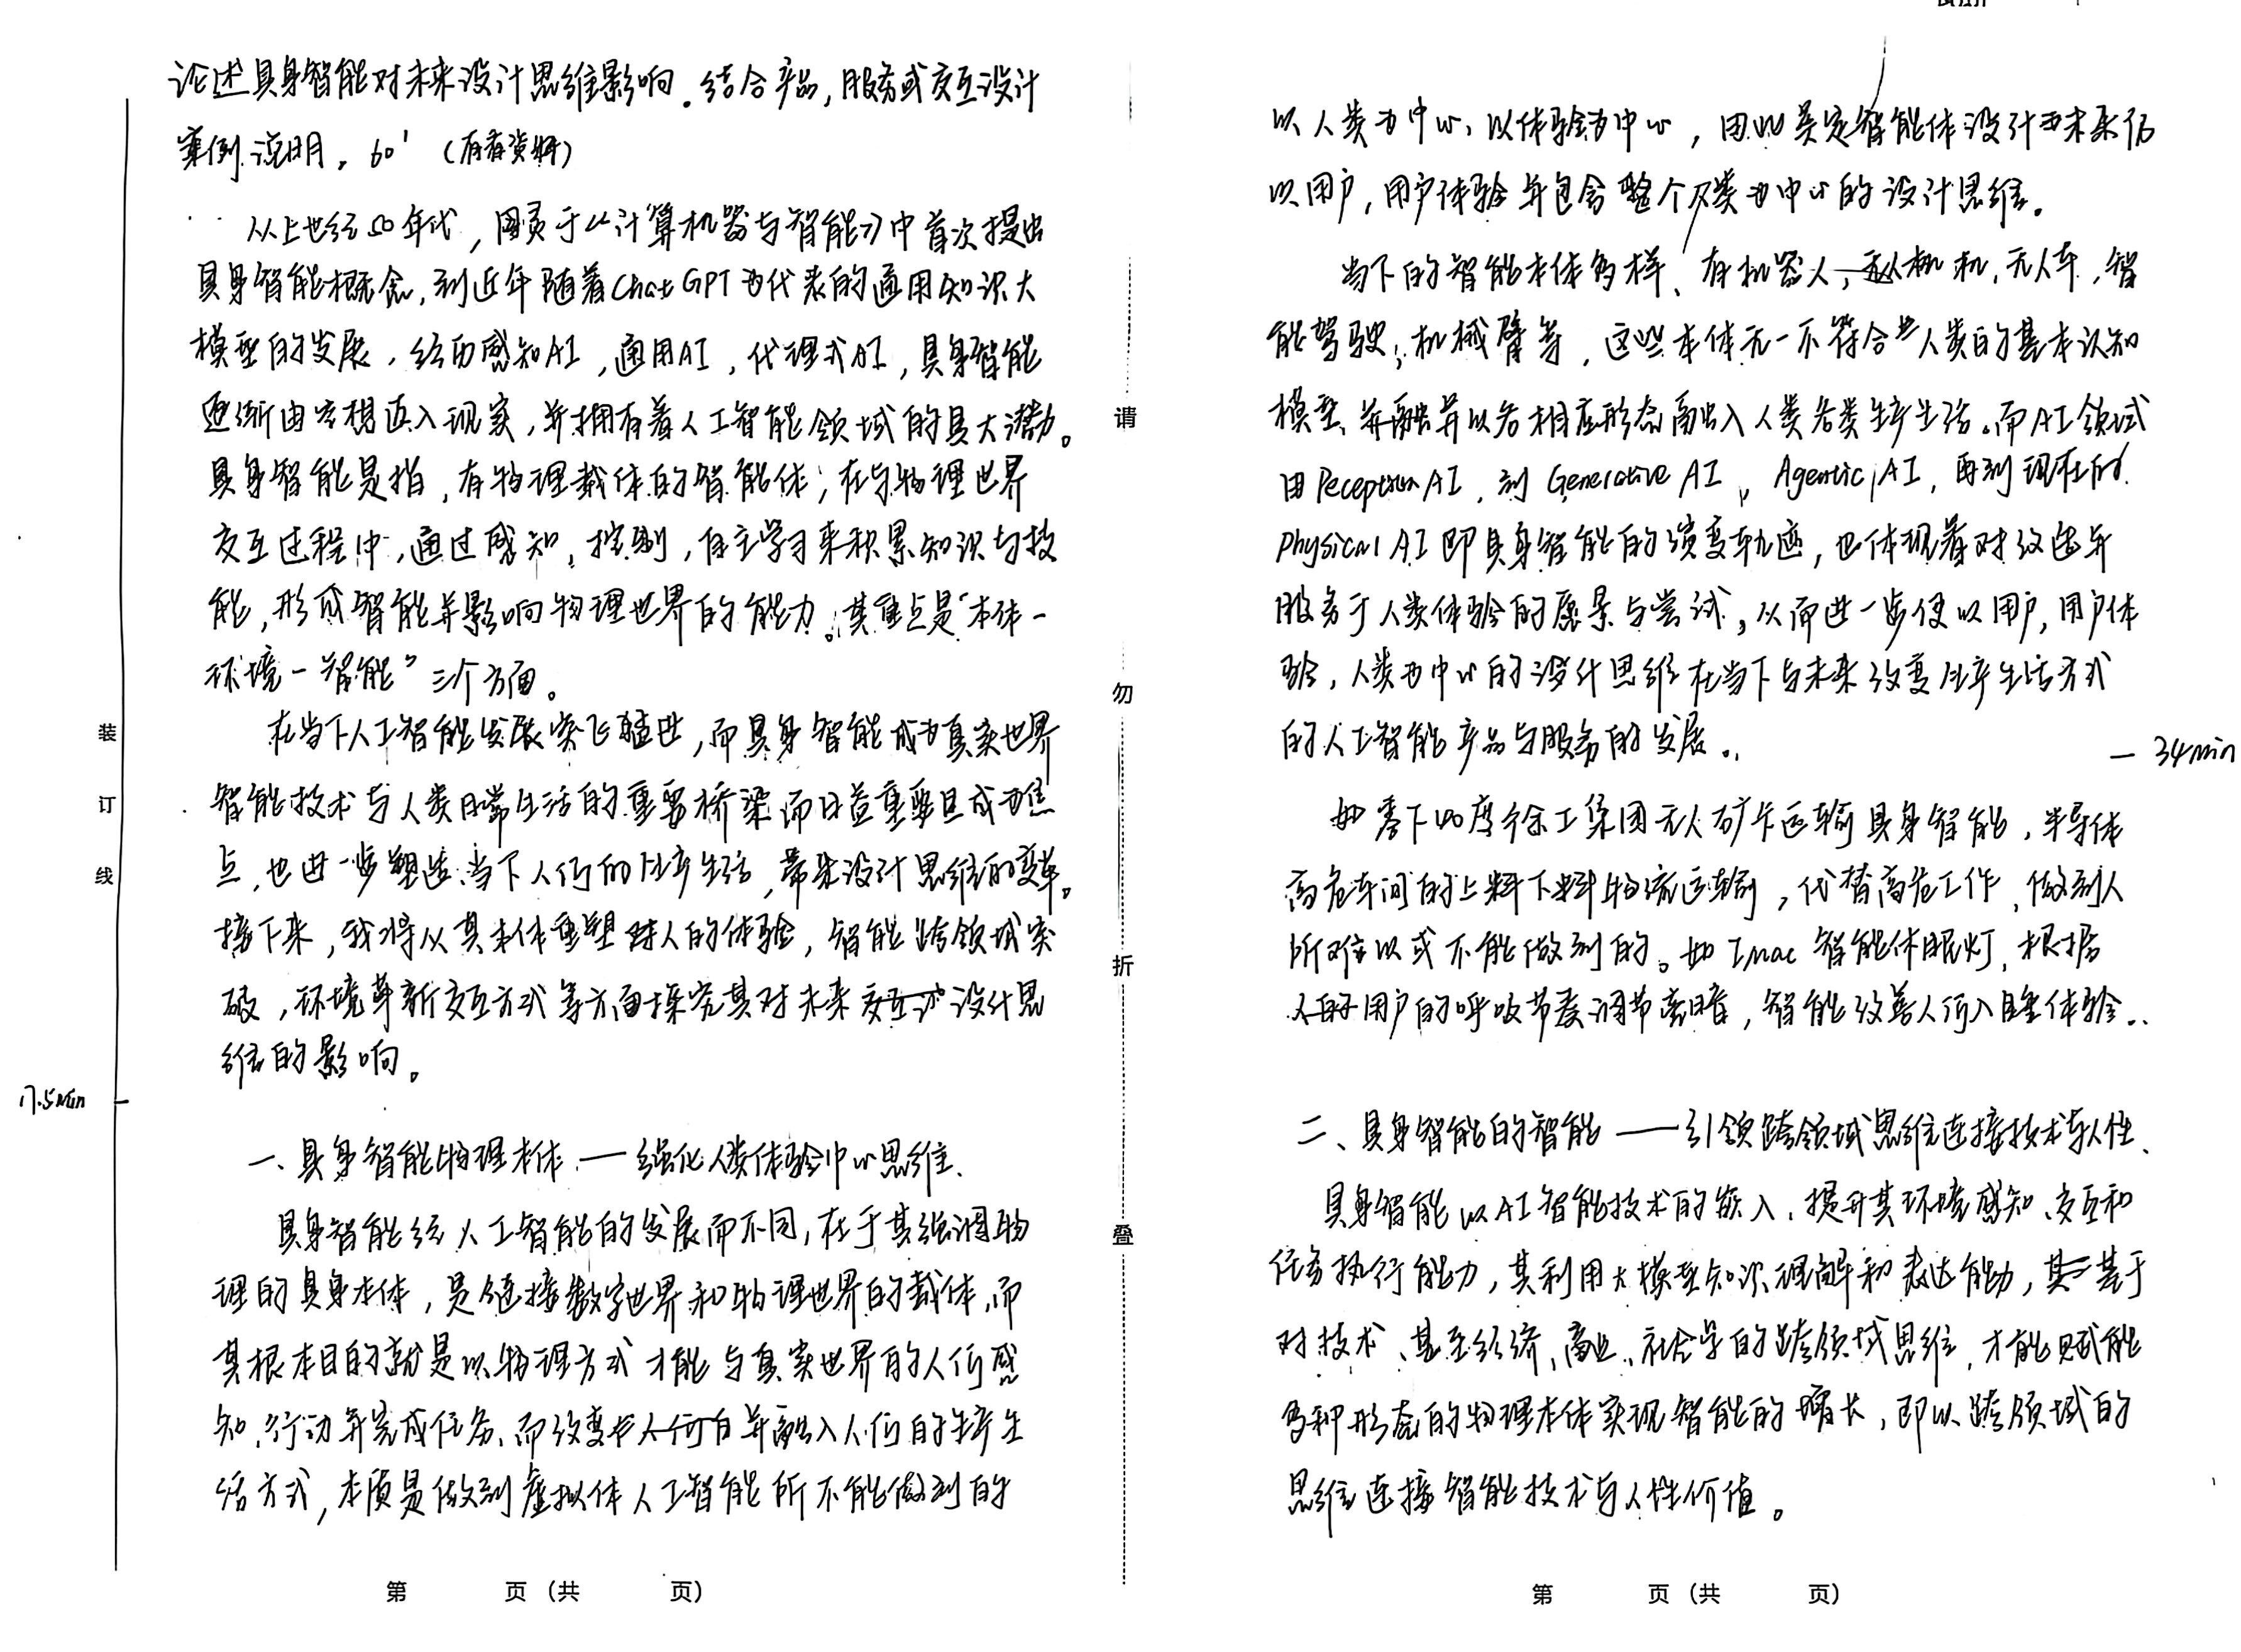 论述具身智能对未来设计思维影响。结合产品,服务或交互设计
案例说明。60' (有看资料)
从上世纪50年代,图灵于《计算机器与智能》中首次提出
具身智能概念,到近年随着ChatGPT为代表的通用知识大
模型的发展,经历感知AI,通用AI,代理式AI,具身智能
逐渐由空想迈入现实,并拥有着人工智能领域的巨大潜力。
具身智能是指,有物理载体的智能体;在与物理世界
交互过程中,通过感知,控制,自主学习来积累知识与技
能,形成智能并影响物理世界的能力。其重点是“本体-
环境-智能”三个方面。
在当下人工智能发展突飞猛进,而具身智能成为真实世界
智能技术与人类日常生活的重要桥梁而日益重要且成为焦
点,也进一步塑造当下人们的生产生活,带来设计思维的变革。
接下来,我将从其本体重塑对人的体验,智能跨领域突
破,环境革新交互方式等方面探究其对未来交互设设计思
维的影响。
17.5min
一、具身智能物理本体——强化人类体验中心思维、
具身智能经人工智能的发展而不同,在于其强调物
理的具身本体,是链接数字世界和物理世界的载体,而
其根本目的就是以物理方式才能与真实世界的人们感
知、行动并完成任务、而改变人们自并融入人们的生产生
活方式,本质是做到虚拟体人工智能所不能做到的
以人类为中心、以体验为中心,因此奠定智能体设计未来仍
以用户,用户体验并包含整个人类为中心的设计思维。
当下的智能本体多样、有机器人,无人机,无人车,智
能驾驶,机械臂等,这些本体无一不符合人类的基本认知
模型、并以各相应形态融入人类各类生产生活。而AI领域
由PeceptionAI,到Generative AI,Agentic AI,再到现在的
Physical AI即具身智能的演变轨迹,也体现着对改造并
服务于人类体验的愿景与尝试,从而进一步使以用户,用户体
验,人类为中心的设计思维在当下与未来改变生产生活方式
的人工智能产品与服务的发展。
— 34min
如零下40度徐工集团无人矿卡运输具身智能,半导体
高危车间的上料下料物流运输,代替高危工作,做到人
所难以或不能做到的。如Imac智能休眠灯,根据
人的用户的呼吸节奏调节亮暗,智能改善人们入睡体验。
二、具身智能的智能——引领跨领域思维连接技术与人性、
具身智能以AI智能技术的嵌入、提升其环境感知、交互和
任务执行能力,其利用大模型知识理解和表达能力,其基于
对技术、甚至经济、商业、社会学的跨领域思维,才能赋能
多种形态的物理本体实现智能的增长,即以跨领域的
思维连接智能技术与人性价值。
装
订
线
请
勿
折
叠
第 页 (共 页)
第 页 (共 页)